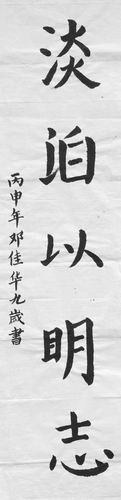 淡泊以明志
丙申年邓佳华九歲書